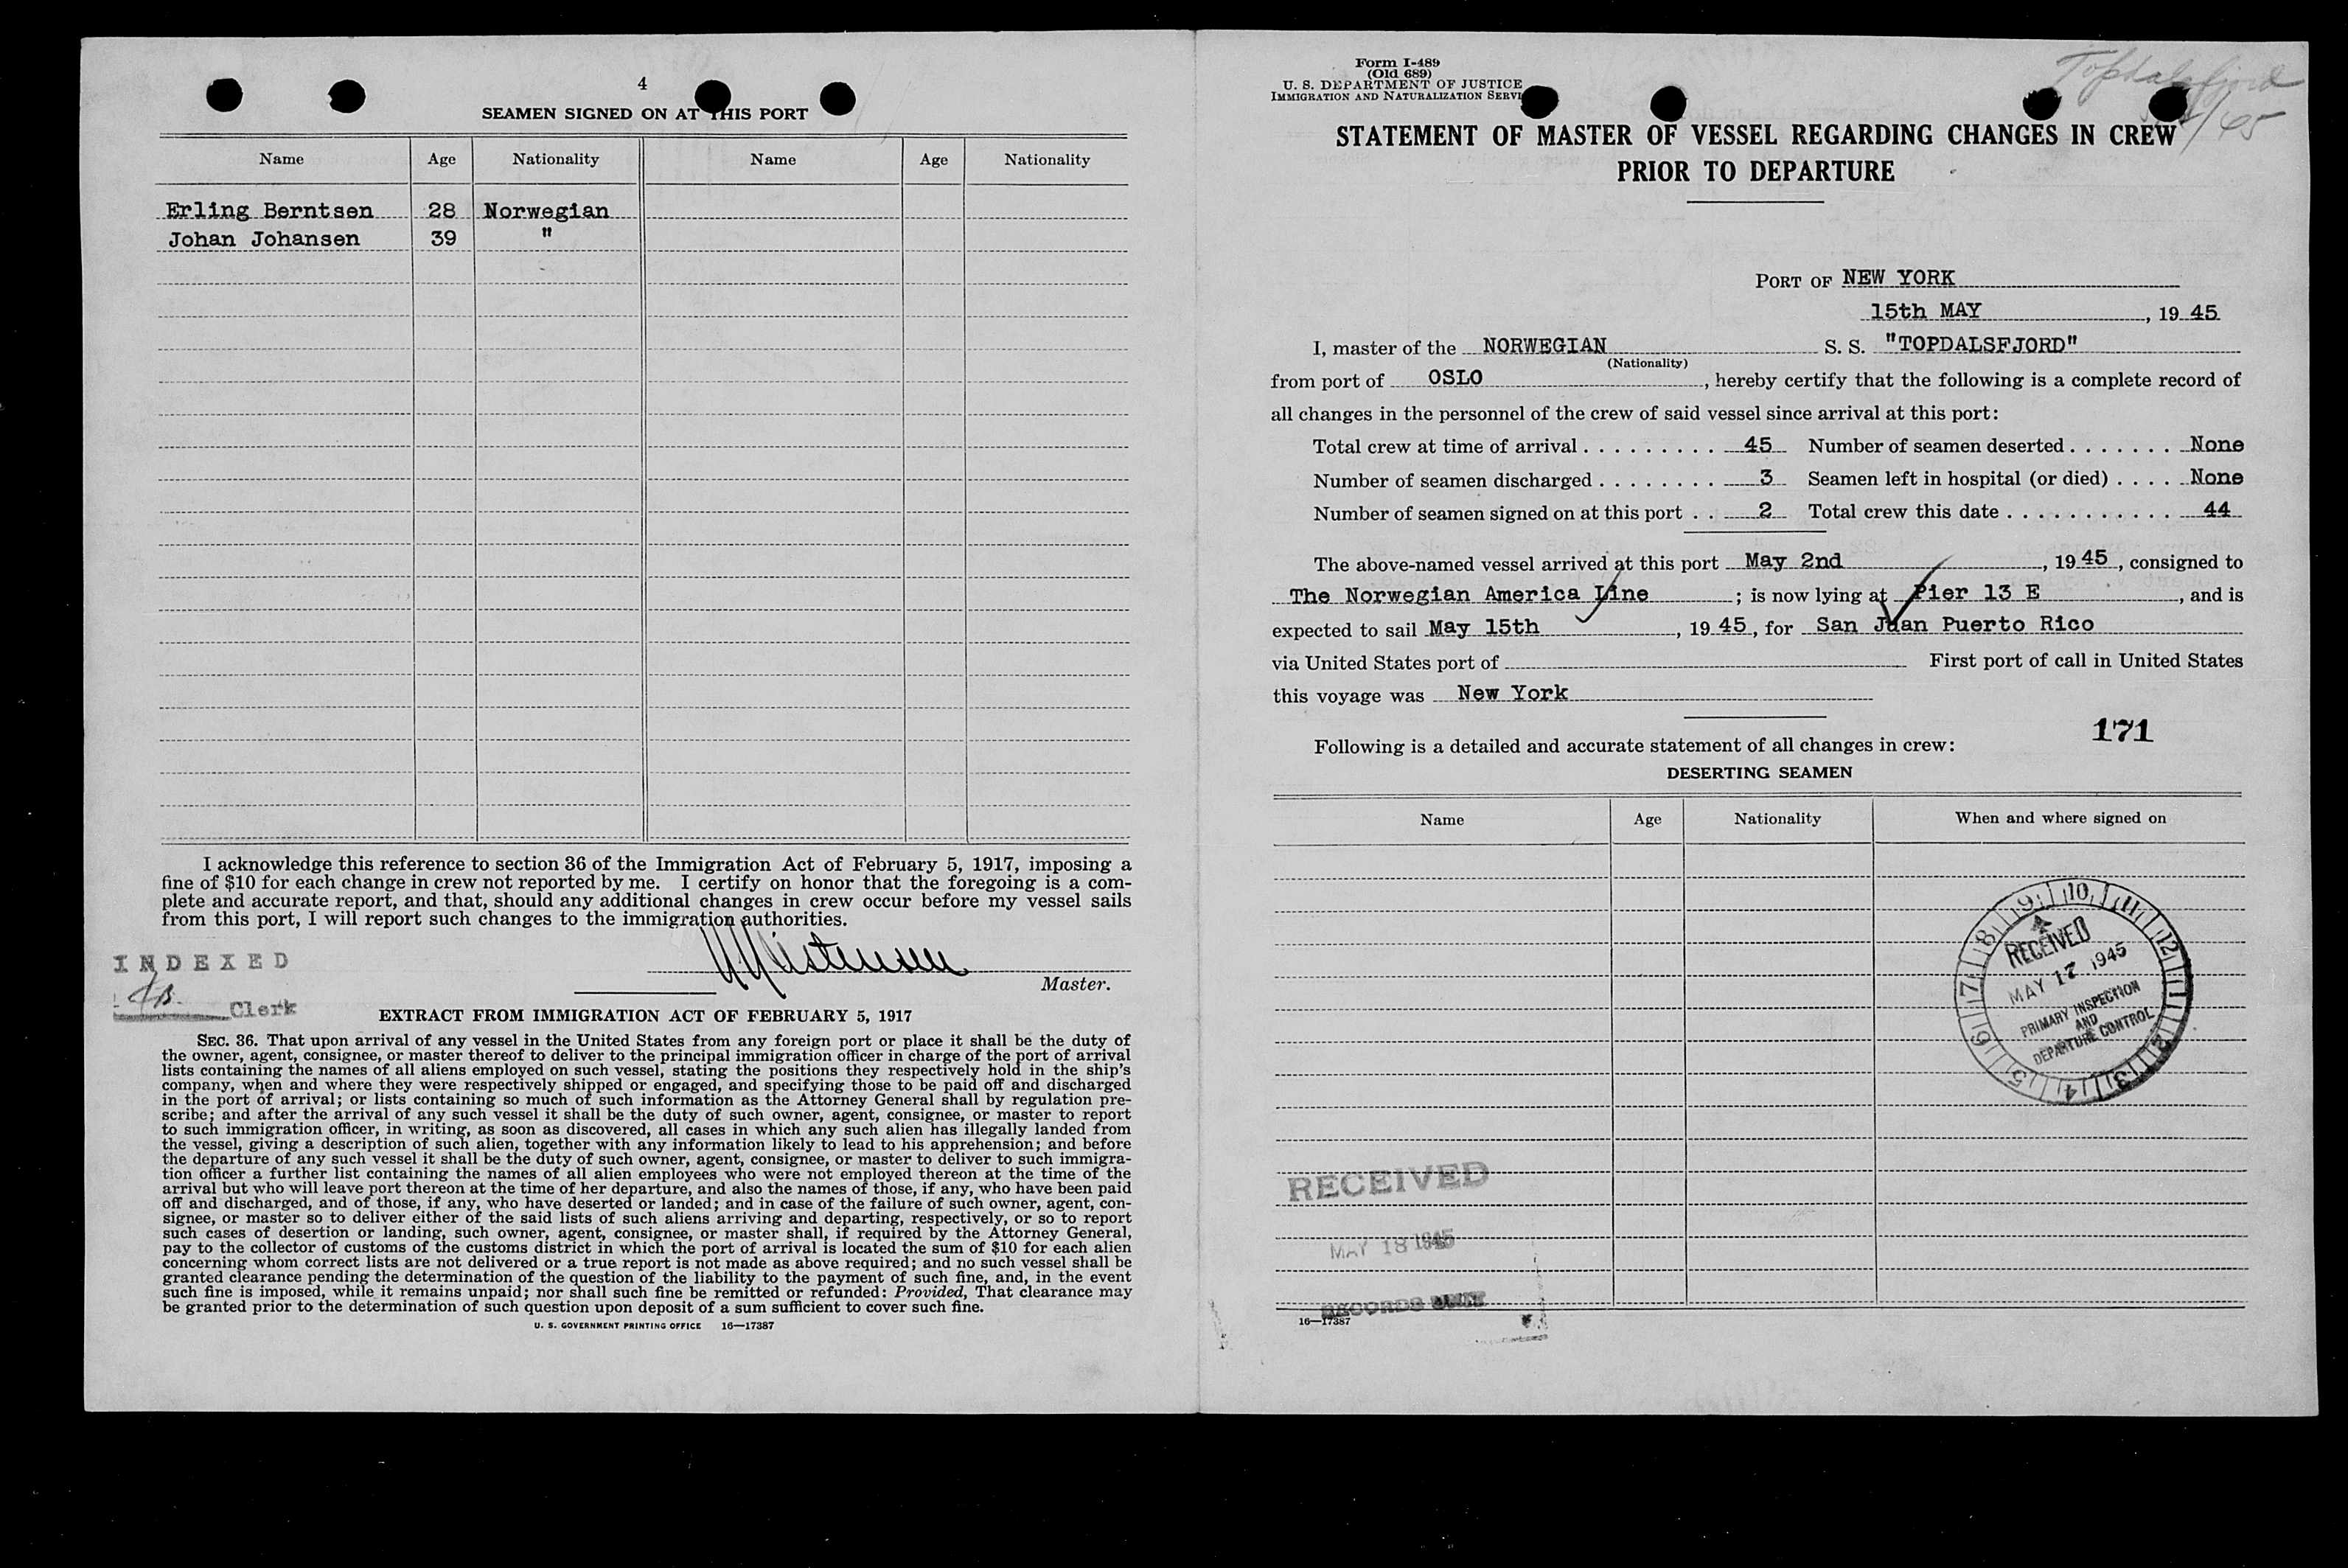 4
SEAMEN SIGNED ON AT THIS PORT
Name Age Nationality Name Age Nationality
Erling Berntsen 28 Norwegian
Johan Johansen 39 "
I acknowledge this reference to section 36 of the Immigration Act of February 5, 1917, imposing a
fine of $10 for each change in crew not reported by me. I certify on honor that the foregoing is a com-
plete and accurate report, and that, should any additional changes in crew occur before my vessel sails
from this port, I will report such changes to the immigration authorities.
INDEXED
Clerk
Master.
EXTRACT FROM IMMIGRATION ACT OF FEBRUARY 5, 1917
SEC. 36. That upon arrival of any vessel in the United States from any foreign port or place it shall be the duty of
the owner, agent, consignee, or master thereof to deliver to the principal immigration officer in charge of the port of arrival
lists containing the names of all aliens employed on such vessel, stating the positions they respectively hold in the ship's
company, when and where they were respectively shipped or engaged, and specifying those to be paid off and discharged
in the port of arrival; or lists containing so much of such information as the Attorney General shall by regulation pre-
scribe; and after the arrival of any such vessel it shall be the duty of such owner, agent, consignee, or master to report
to such immigration officer, in writing, as soon as discovered, all cases in which any such alien has illegally landed from
the vessel, giving a description of such alien, together with any information likely to lead to his apprehension; and before
the departure of any such vessel it shall be the duty of such owner, agent, consignee, or master to deliver to such immigra-
tion officer a further list containing the names of all alien employees who were not employed thereon at the time of the
arrival but who will leave port thereon at the time of her departure, and also the names of those, if any, who have been paid
off and discharged, and of those, if any, who have deserted or landed; and in case of the failure of such owner, agent, con-
signee, or master so to deliver either of the said lists of such aliens arriving and departing, respectively, or so to report
such cases of desertion or landing, such owner, agent, consignee, or master shall, if required by the Attorney General,
pay to the collector of customs of the customs district in which the port of arrival is located the sum of $10 for each alien
concerning whom correct lists are not delivered or a true report is not made as above required; and no such vessel shall be
granted clearance pending the determination of the question of the liability to the payment of such fine, and, in the event
such fine is imposed, while it remains unpaid; nor shall such fine be remitted or refunded: Provided, That clearance may
be granted prior to the determination of such question upon deposit of a sum sufficient to cover such fine.
U. S. GOVERNMENT PRINTING OFFICE 16—17387
Form I-489
(Old 689)
U. S. DEPARTMENT OF JUSTICE
IMMIGRATION AND NATURALIZATION SERVI
Topdalsfjord
STATEMENT OF MASTER OF VESSEL REGARDING CHANGES IN CREW
PRIOR TO DEPARTURE
PORT OF NEW YORK
15th MAY, 19 45
I, master of the NORWEGIAN S. S. "TOPDALSFJORD"
(Nationality)
from port of OSLO, hereby certify that the following is a complete record of
all changes in the personnel of the crew of said vessel since arrival at this port:
Total crew at time of arrival . . . . . . . . . 45 Number of seamen deserted . . . . . . . None
Number of seamen discharged . . . . . . . . 3 Seamen left in hospital (or died) . . . . None
Number of seamen signed on at this port . . 2 Total crew this date . . . . . . . . . . . 44
The above-named vessel arrived at this port May 2nd, 19 45, consigned to
The Norwegian America Line; is now lying at Pier 13 E, and is
expected to sail May 15th, 19 45, for San Juan Puerto Rico
via United States port of First port of call in United States
this voyage was New York
171
Following is a detailed and accurate statement of all changes in crew:
DESERTING SEAMEN
Name Age Nationality When and where signed on
9 10 11 12 1 2 3 4 5 6 7 8
RECEIVED
MAY 17 1945
PRIMARY INSPECTION
AND
DEPARTURE CONTROL
RECEIVED
MAY 18 1945
RECORDS UNIT
16—17387